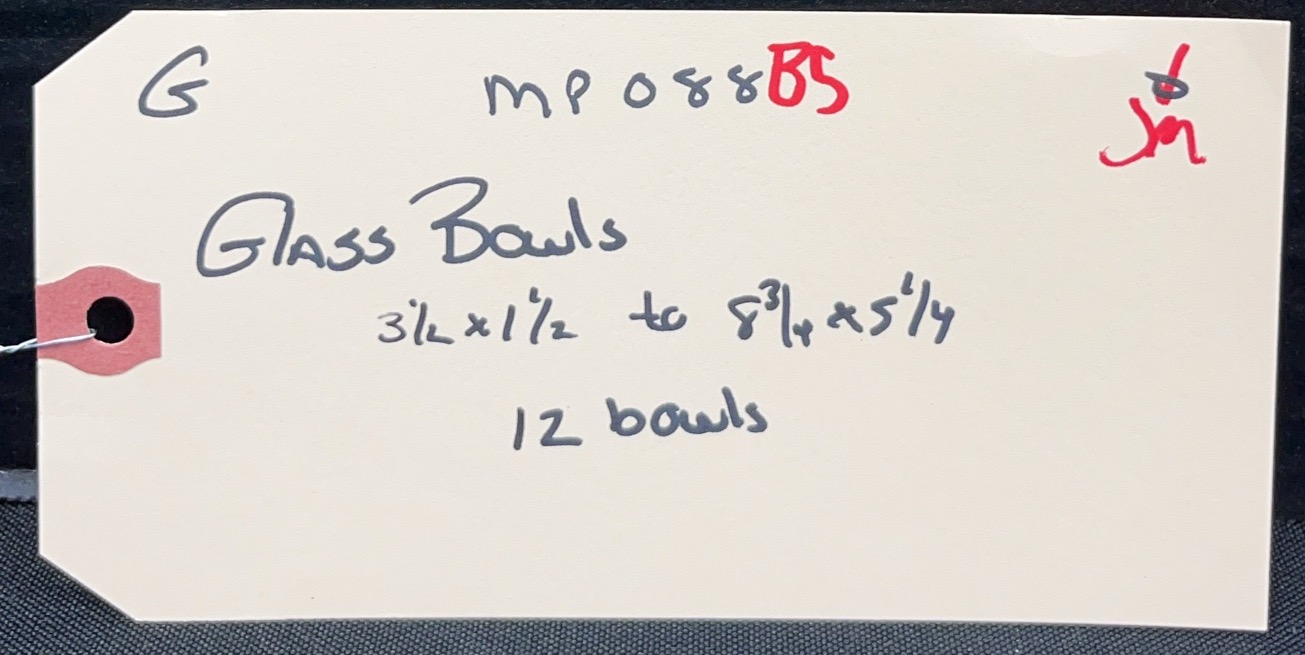 G MP 088BS
Jm
Glass Bowls
3 1/2 x 1 1/2 to 8 3/4 x 5 1/4
12 bowls